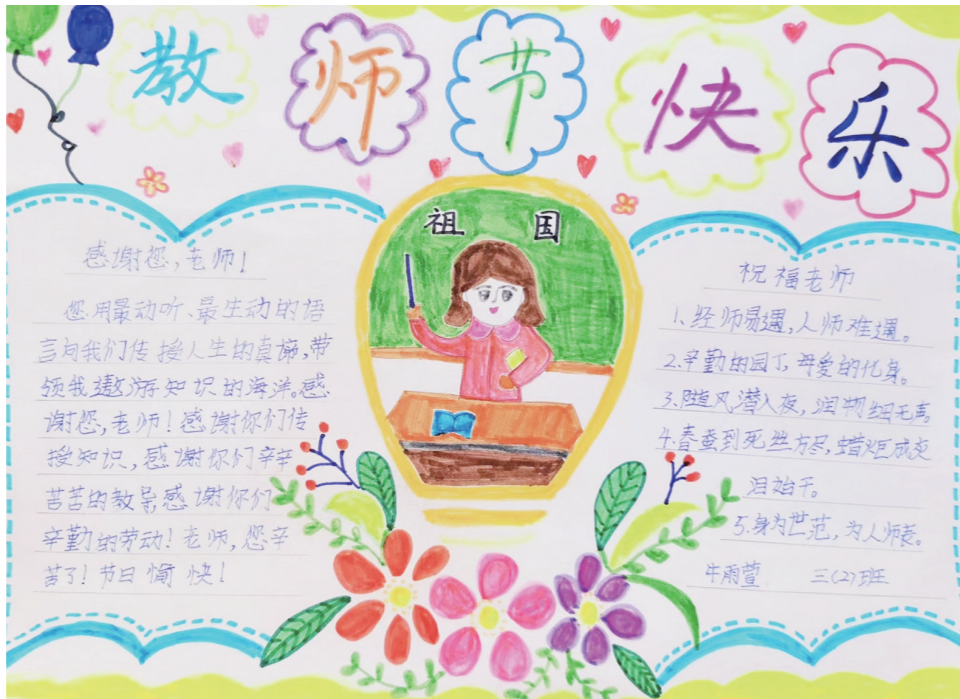 教师节快乐
祖国
感谢您,老师!
您用最动听、最生动的语
言向我们传授人生的真谛,带
领我遨游知识的海洋。感
谢您,老师!感谢你们传
授知识,感谢你们辛辛
苦苦的教导感谢你们
辛勤的劳动!老师,您辛
苦了!节日愉快!
祝福老师
1、经师易遇,人师难遇。
2.辛勤的园丁,母爱的化身。
3.随风潜入夜,润物细无声。
4.春蚕到死丝方尽,蜡炬成灰
泪始干。
5.身为世范,为人师表。
牛雨萱 三(2)班